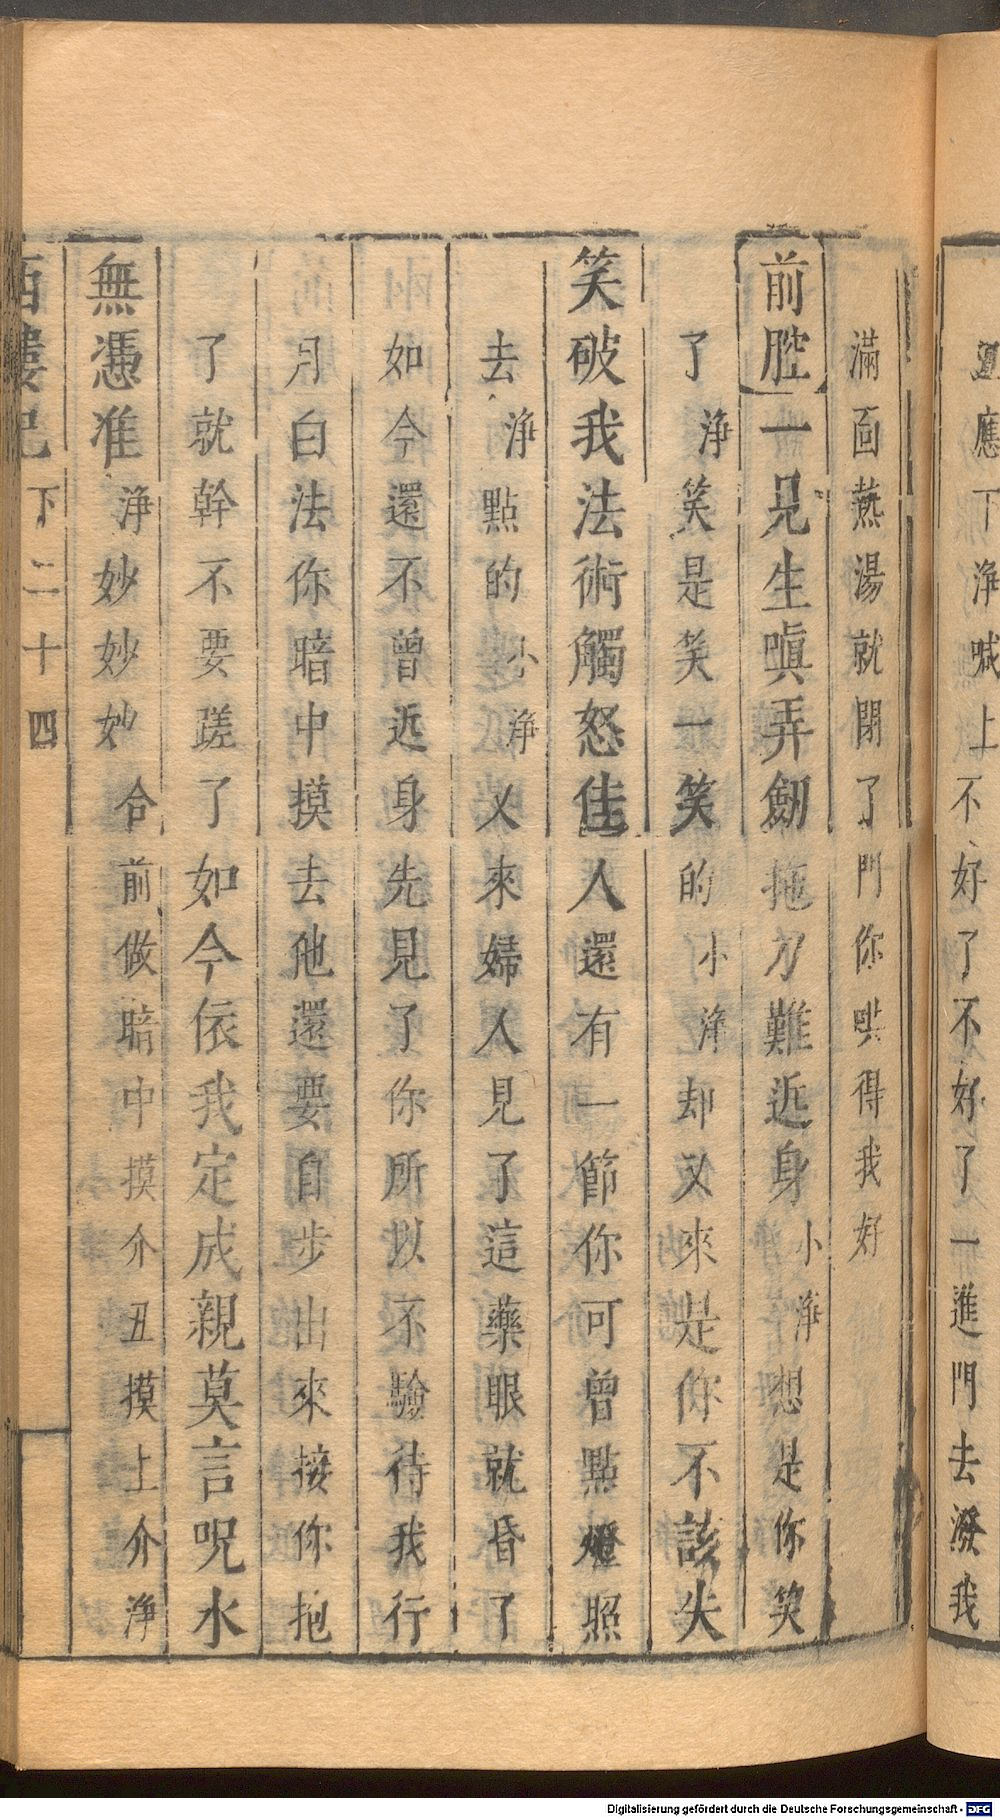 應下淨喊上不好了不好了一進門去潑我
滿面𤍠湯就閉了門你哄得我好
前腔一見生嗔弄劒拖刀難近身小淨想是你笑
了淨笑是笑一笑的小淨却又來是你不該失
笑破我法術觸怒佳人還有一節你可曾點燈照
去淨點的小淨又來婦人見了這藥眼就昏了
如今還不曾近身先見了你所以不驗待我行
月白法你暗中摸去他還要自步出來接你抱
了就幹不要蹉了如今依我定成親莫言呪水
無憑准淨妙妙妙合前做暗中摸介丑摸上介淨
西樓記下二十四
Digitalisierung gefördert durch die Deutsche Forschungsgemeinschaft - DFG